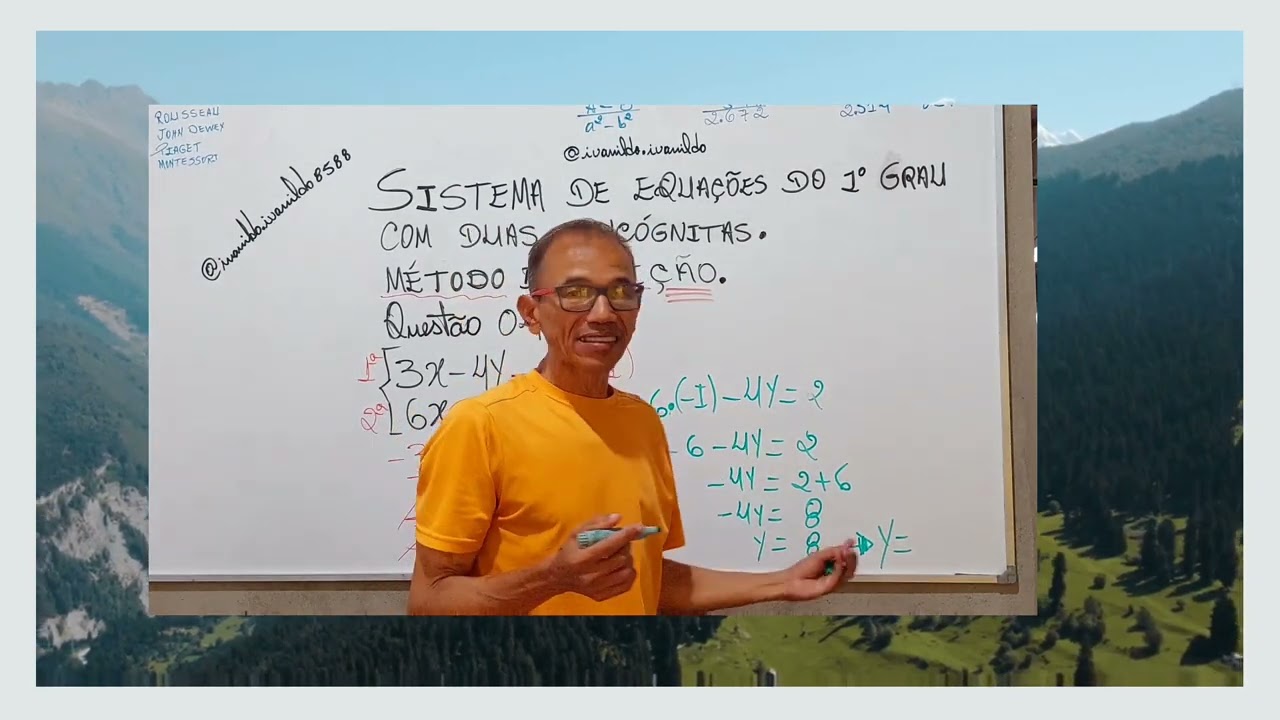 ROUSSEAU
JOHN DEWEY
PIAGET
MONTESSORI
a² - b²
2.672
2.314
@ivanildo.ivanildo
@ivanildo.ivanildo8588
SISTEMA DE EQUAÇÕES DO 1º GRAU
COM DUAS
MÉTODO
Questão
1ª 3x - 4y
2ª 6x
6.(-1) - 4y = 2
- 6 - 4y = 2
-4y = 2+6
-4y = 8
y = 8 y =